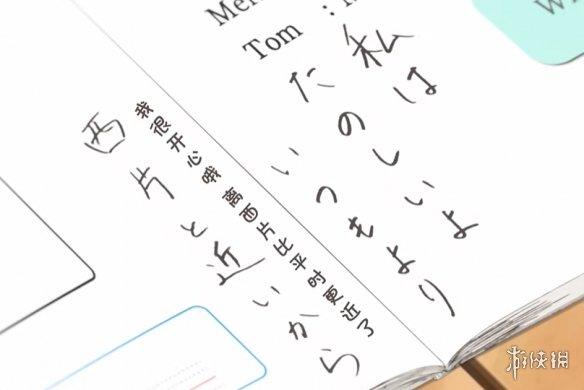 Tom :
私は
たのしいよ
いつもより
西片と近いから
我很开心哦 离西片比平时更近了
游侠网